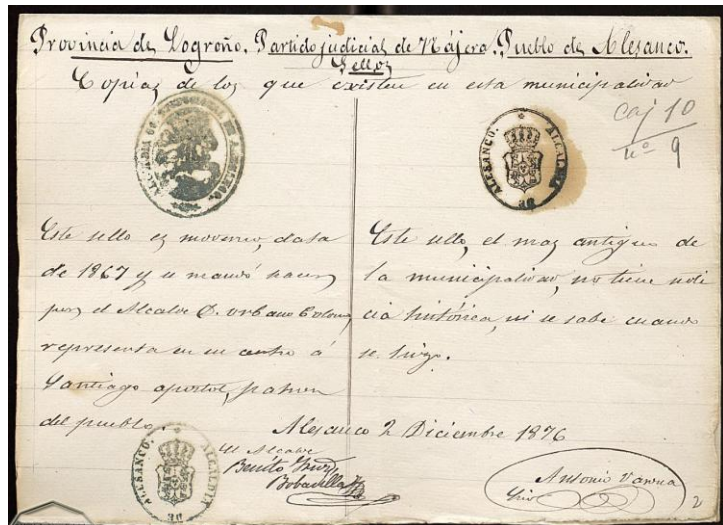 Provincia de Logroño. Partido judicial de Nájera. Pueblo de Alesanco.
Sellos
Copias de los que existen en esta municipalidad
Caj 10
nº 9
ALESANCO. ALCALDIA
Este sello es moderno, data
de 1867 y se mandó hacer
por el Alcalde D. Urbano
representa en su centro á
Santiago apostol, patron
del pueblo.
Este sello, el mas antiguo de
la municipalidad, no tiene noti
cia histórica, ni se sabe cuando
se hizo.
Alesanco 2 Diciembre 1876
El Alcalde
Benito
Bobadilla
ALESANCO. ALCALDIA
Antonio
Srio
2